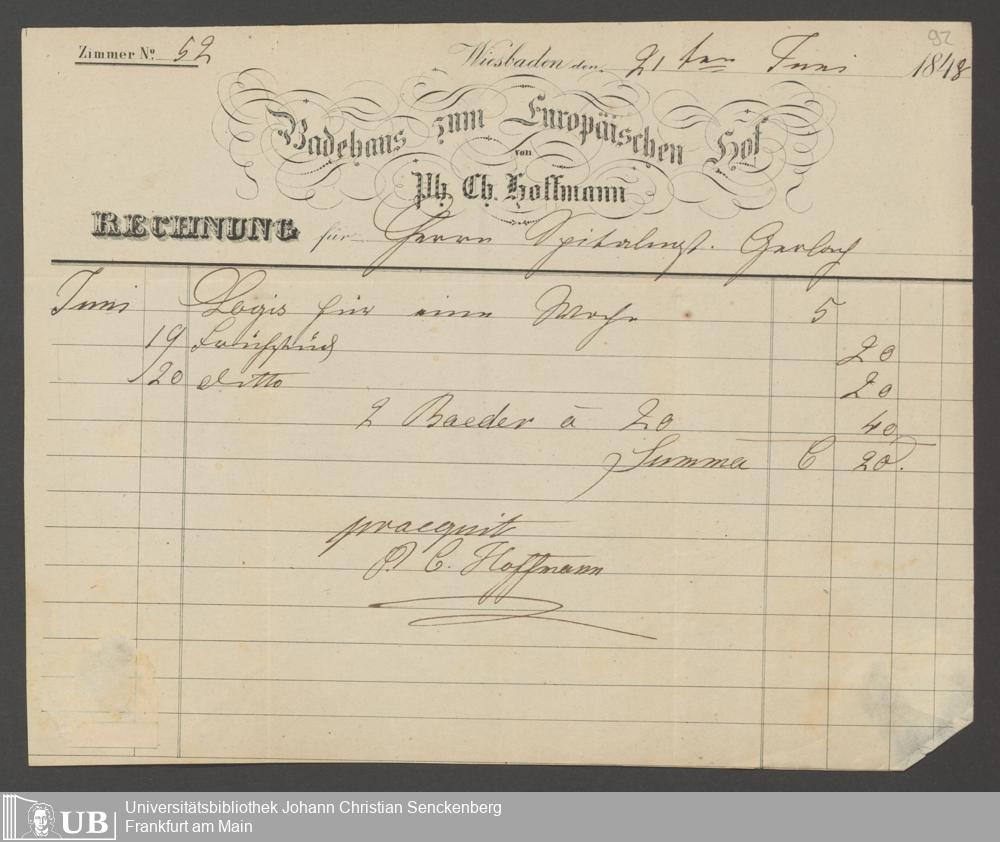 92
Zimmer No. 52 Wiesbaden den 21 ten Juni 1848
Badehaus zum Europäischen Hof
von
Ph. Ch. Hoffmann
RECHNUNG für Herrn Gerlach
Juni Logis für eine Woche 5
19 Frühstück 20
20 ditto 20
2 Baeder a 20 40
Summa 6 20.
C. Hoffmann
UB
Universitätsbibliothek Johann Christian Senckenberg
Frankfurt am Main